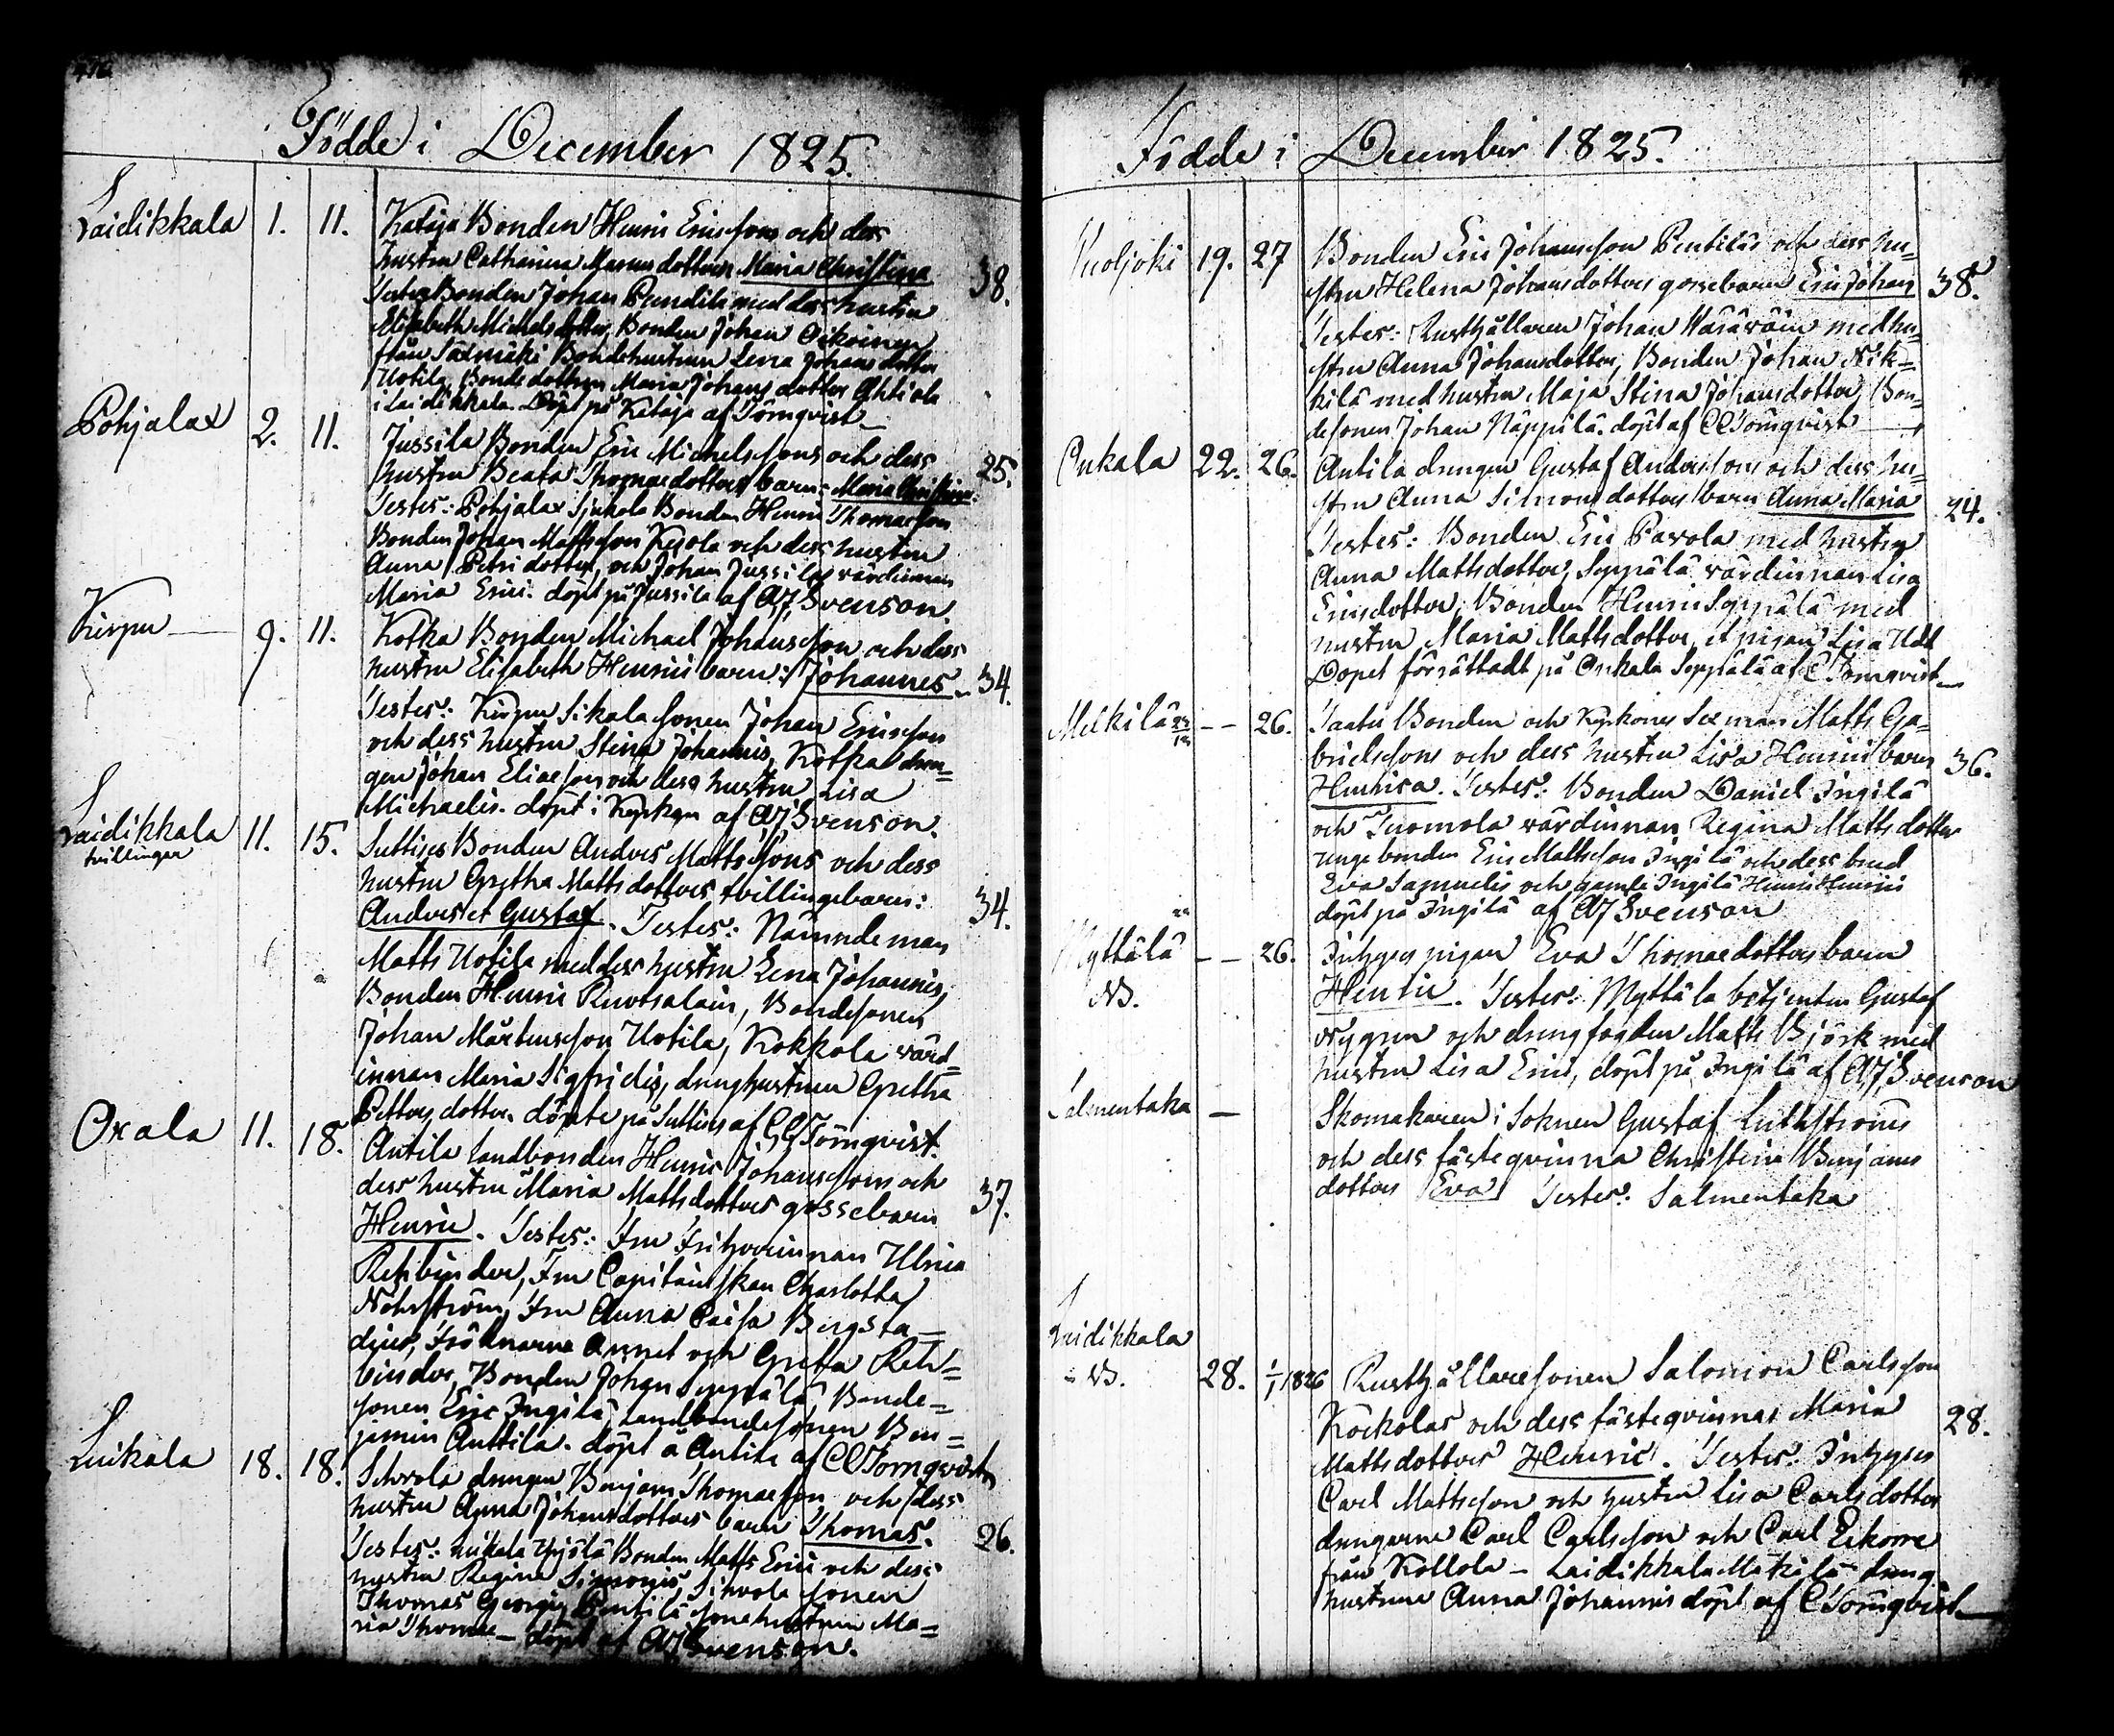 Födde i December 1825.
Laidikkala 1. 11. Kataja Bonden Henric Ericssons och dess
hustru Catharina Marcusdotters Maria Christina 38.
Testes Bonden Johan Prundila med dess hustru
Elisabeth Michelsdotter, Bonden Johan Oikoinen
från Bondehustrun Lena Johansdotter
Uotila, Bondedottren Maria Johansdotter Ahtiala
i Laidikkala. Döpt på Kataja af Törnqvist
Pohjalax 2. 11. Jussila Bonden Eric Michelssons och dess
hustru Beata Thomaedotters barn: Maria Christina. 25.
Testes: Pohjalax Sjukola Bonden Henric Thomasson
Bonden Johan Mattsson Kuola och dess hustru
Anna Petridotter, och Johan Jussilas värdinnan
Maria Erici. döpt på Jussila af AJSvenson.
Kirpu 9. 11. Kotka Bonden Michael Johansson och dess
hustru Elisabeth Henrici barn: Johannes. 34
Testes: Kirpu Sikala sonen Johan Ericsson
och dess hustru Stina Johannis, Kotka dren=
gen Johan Eliaeson och dess hustru Lisa
Michaelis. döpt i Kyrkan af AJSvenson.
Laidikkala 11. 15. Suttises Bonden Anders Mattssons och dess
tvillingar
hustru Gretha Mattsdotters tvillingebarn: 34.
Anders et Gustaf. Testes: Nämndeman
Matts Uotila med dess hustru Lena Johannis,
Bonden Henric Ruotsalain, Bondesonen
Johan Mårtensson Uotila, Kokkola värd=
innan Maria Sigfridis, dränghustrun Gretha
Pettersdotter. döpte på Suttises af CGTörnqvist.
Oxala 11. 18. Antila Landbonden Henric Johanssons och
dess hustru Maria Mattsdotters gossebarn 37.
Henric. Testes: Fru Friherrinnan Ulrica
Rehbinder, Fru Capitainskan Charlotta
Nohrström, Fru Anna Caisa Bergsta=
dius, Fröknarne Annet och Gretha Reh=
binder, Bonden Johan Seppälä, Bonde=
sonen Eric Ingilä, Landbondesonen Ben=
jamin Anttila. döpt å Antila af CGTörnqvist
Luikala 18. 18. drengen Benjam Thomasson och dess
hustru Anna Johansdotters barn Thomas. 26.
Testes: Luikala Yrjölä Bonden Matts Erici och dess
hustru Regina Simonis, Sihvola sonen
Thomas Georgii, Pentilä sonehustrun Ma=
ria Thomae — döpt af AJSvenson.
Födde i December 1825.
Kuoljoki 19. 27 Bonden Eric Johansson Pentiläs och dess hu=
stru Helena Johansdotters gossebarn Eric Johan 38.
Testes: Rusthållaren Johan Wäräväin med hu=
stru Anna Johansdotter, Bonden Johan Nik=
kilä med hustru Maja Stina Johansdotter, Bon=
desonen Johan Näppilä. döpt af CGTörnqvist
Onkala 22. 26. Antila drengen Gustaf Anderssons och dess hu=
stru Anna Simonsdotters barn Anna Maria 24.
Testes: Bonden Eric Pavola med hustru
Anna Mattsdotter, Seppälä värdinnan Lisa
Ericsdotter, Bonden Henric Seppälä med
hustru Maria Mattsdotter, et pigan Lisa Udd
Dopet förrättadt på Onkala Seppälä af CTörnqvist
Melkilä 22/12 — — 26. Taatu Bonden och Kyrkones Sexman Matts Ga=
brielssons och dess hustru Lisa Henrici barn 36.
Henrica. Testes: Bonden Daniel Ingilä
och Tuomola värdinnan Regina Mattsdotter
unge bonden Eric Mattsson Ingilä och dess brud
Eva Samuelis och gamle Ingilä Henric Henrici
döpt på Ingilä af AJSvenson
Myttälä — — 26. Inhyses pigan Eva Thomaedotters barn
NB.
Henric. Testes: Myttälä betjenten Gustaf
Nygren och drengfogden Matts Björk med
hustru Lisa Erici, döpt på Ingilä af AJSvenson
Salmentaka — Skomakaren i Soknen Gustaf Luthströms
och dess fästeqvinna Christina Benjams
dotters Eva Testes: Salmentaka
Laidikkala
NB. 28. 1/1 1826 Rusthållaresonen Salomon Carlsson
Kockolas och dess fästeqvinnas Maria 28.
Mattsdotters Henric. Testes: Inhyses
Carl Mattsson och hustru Lisa Carlsdotter
drengarne Carl Carlsson och Carl Ekorre
från Kollola — Laidikkala Mäkilä dreng
hustrun Anna Johannis döpt af CTörnqvist